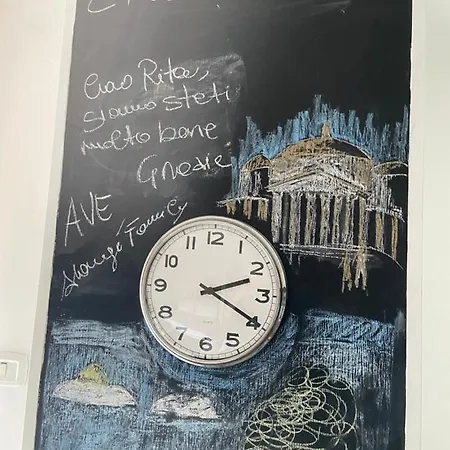 Ciao Rita,
siamo steti
molto bene
Grazie
AVE
Family
12
1
2
3
4
5
6
7
8
9
10
11